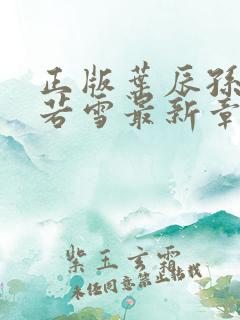 正版叶辰孙
若雪最新章
紫玉玄霜
未经同意禁止转载